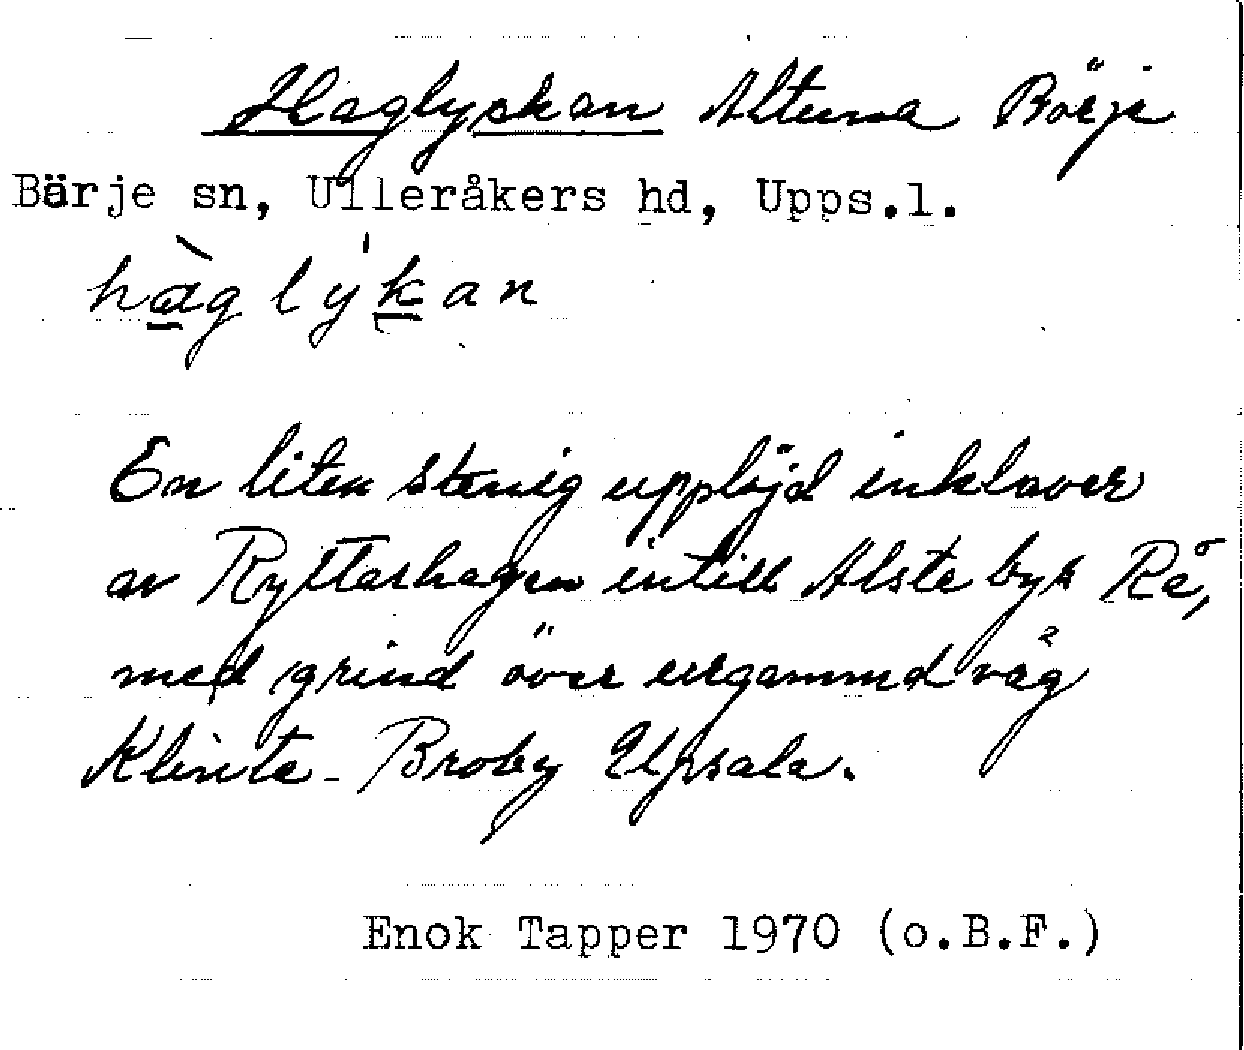 Haglyckan Altuna Börje
Bärje sn, Ulleråkers hd, Upps.l.
hàglýkan
En liten stenig upplöjd inklaver
av Ryttarhagen intill Alsta bys Rå,
med grind över urgammal väg
Klinta - Broby Upsala.
Enok Tapper 1970 (o.B.F.)